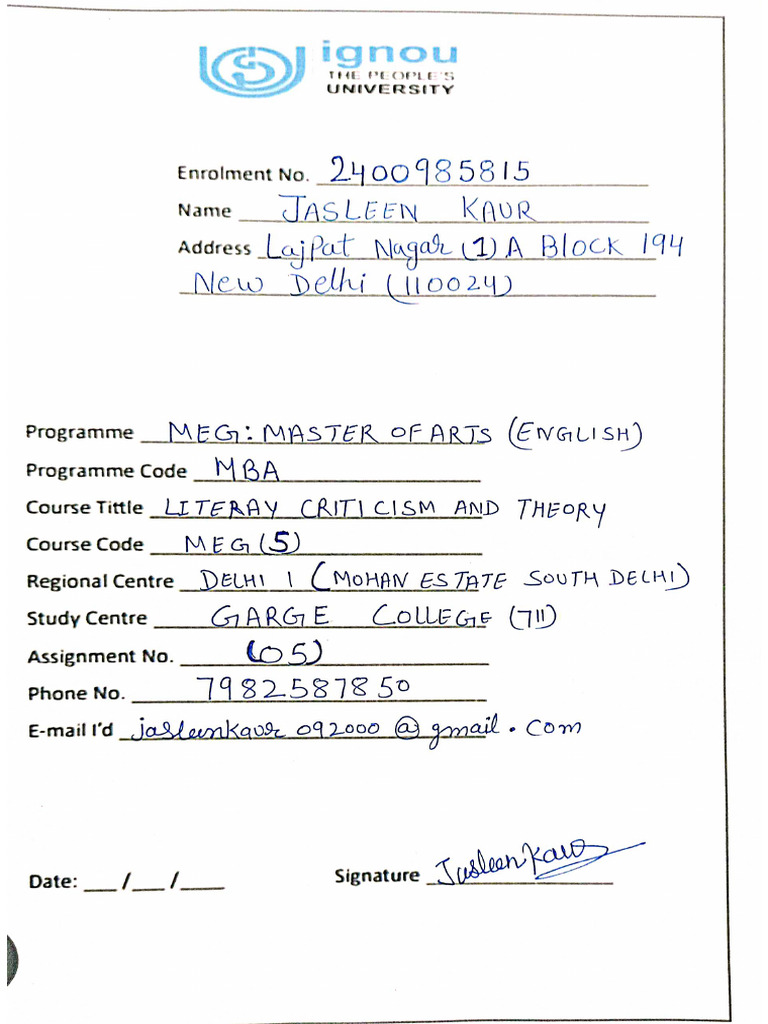 ignou
THE PEOPLE'S
UNIVERSITY
Enrolment No. 2400985815
Name JASLEEN KAUR
Address Lajpat Nagar (1) A Block 194
New Delhi (110024)
Programme MEG: MASTER OF ARTS (ENGLISH)
Programme Code MBA
Course Tittle LITERAY CRITICISM AND THEORY
Course Code MEG (5)
Regional Centre DELHI 1 (MOHAN ESTATE SOUTH DELHI)
Study Centre GARGE COLLEGE (711)
Assignment No. (05)
Phone No. 7982587850
E-mail I'd jasleenkaur092000@gmail.com
Date: __/__/___ Signature Jasleen Kaur